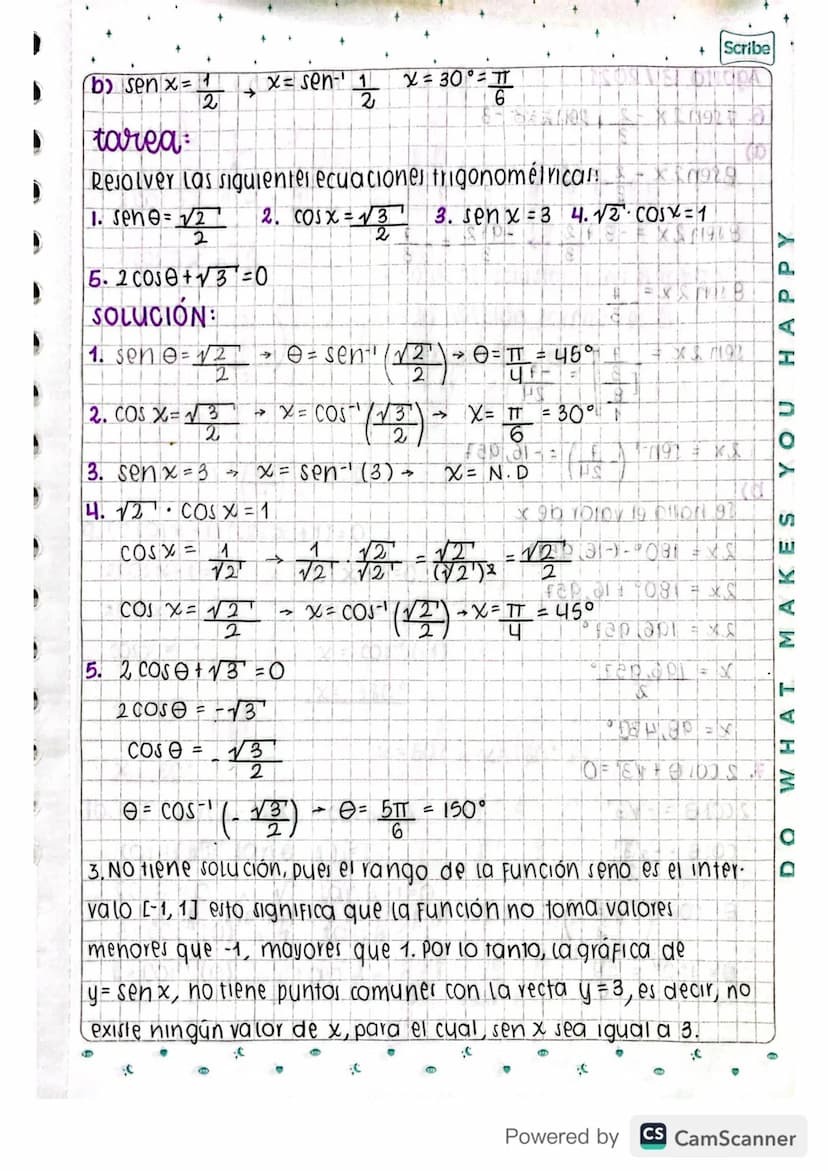 Scribe
b) sen x = 1/2 → x = sen⁻¹ 1/2 x = 30° = π/6
tarea:
Resolver las siguientes ecuaciones trigonométricas:
1. sen θ = √2/2 2. cos x = √3/2 3. sen x = 3 4. √2 · cos x = 1
5. 2 cos θ + √3 = 0
SOLUCIÓN:
1. sen θ = √2/2 → θ = sen⁻¹ (√2/2) → θ = π/4 = 45°
2. cos x = √3/2 → x = cos⁻¹ (√3/2) → x = π/6 = 30°
3. sen x = 3 → x = sen⁻¹ (3) → x = N.D
4. √2 · cos x = 1
cos x = 1/√2 → 1/√2 · √2/√2 = √2/(√2)² = √2/2
cos x = √2/2 → x = cos⁻¹ (√2/2) → x = π/4 = 45°
5. 2 cos θ + √3 = 0
2 cos θ = -√3
cos θ = -√3/2
θ = cos⁻¹ (-√3/2) → θ = 5π/6 = 150°
3. No tiene solución, pues el rango de la función seno es el inter-
valo [-1, 1] esto significa que la función no toma valores
menores que -1, mayores que 1. Por lo tanto, la gráfica de
y = sen x, no tiene puntos comunes con la recta y = 3, es decir, no
existe ningún valor de x, para el cual, sen x sea igual a 3.
DO WHAT MAKES YOU HAPPY
Powered by CS CamScanner